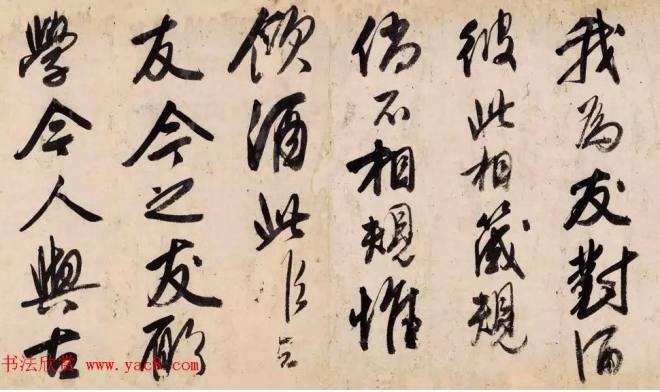 我為友對酒
彼此相箴規
倘不相規惟
飲酒此
友今之友
學今人與古
书法欣赏 www.yac8.com